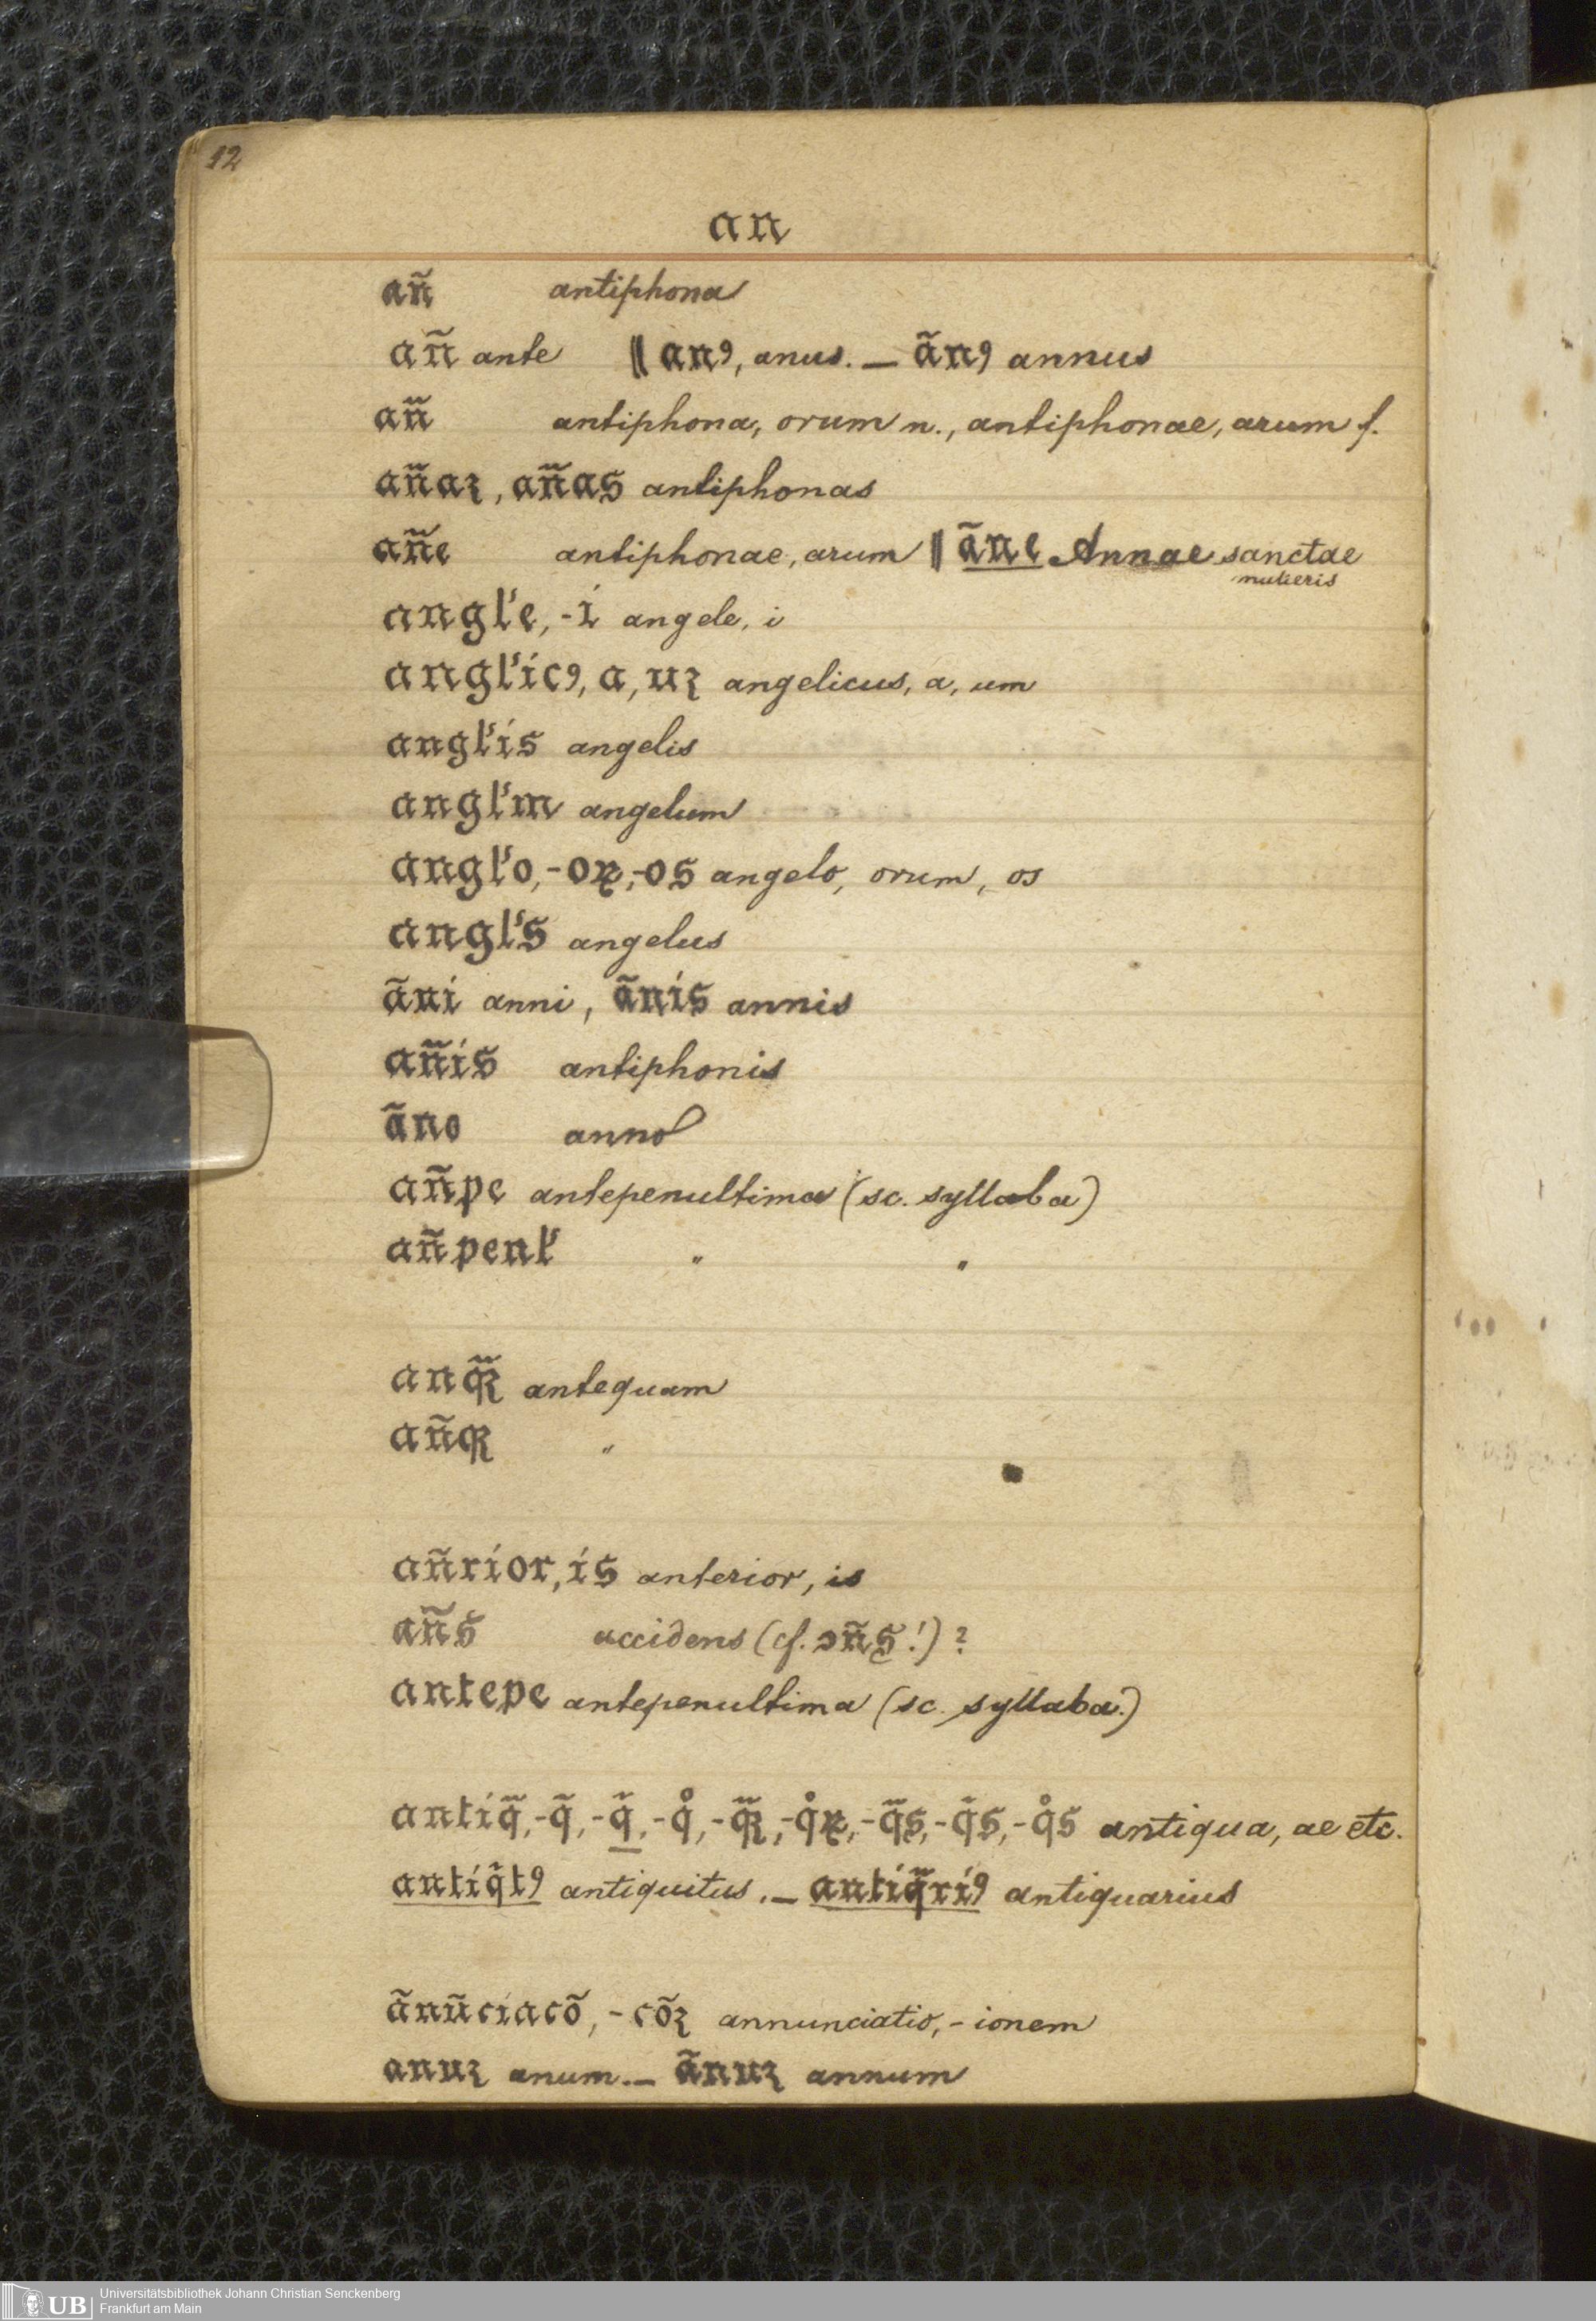 12
an
añ antiphona
añ ante || anꝰ, anus. — ãnꝰ annus
añ̃ antiphona, orum n., antiphonae, arum f.
añ̃aꝫ, añ̃as antiphonas
añ̃e antiphonae, arum || ãne Annae sanctae
mulieris
angl'e, -i angele, i
angl'icꝰ, a, uꝫ angelicus, a, um
angl'is angelis
angl'm angelum
angl'o, -oꝝ, -os angelo, orum, os
angl's angelus
ãni anni, ãnis annis
añ̃is antiphonis
ãno anno
añpe antepenultima (sc. syllaba)
añpenl' " "
anq̃̃ꝫ antequam
añqꝫ "
añrior, is anterior, is
añs accidens (cf. ɔñs!) ?
antepe antepenultima (sc. syllaba.)
antiq̃̃, -q̃, -q̃, -q̊, -q̃̃ꝫ, -q̊ꝝ, -q̃̃s, -q̃s, -q̊s antiqua, ae etc.
antiq̃tꝰ antiquitus. — antiq̃̃riꝰ antiquarius
ãnũciacõ, -cõꝫ annunciatio, -ionem
anuꝫ anum. — ãnuꝫ annum
UB Universitätsbibliothek Johann Christian Senckenberg
Frankfurt am Main